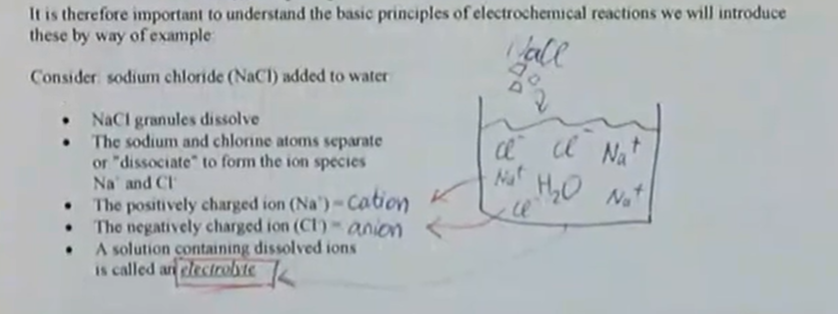 It is therefore important to understand the basic principles of electrochemical reactions we will introduce
these by way of example
Consider: sodium chloride (NaCl) added to water
• NaCl granules dissolve
• The sodium and chlorine atoms separate
or "dissociate" to form the ion species
Na⁺ and Cl⁻
• The positively charged ion (Na⁺) = Cation
• The negatively charged ion (Cl⁻) = anion
• A solution containing dissolved ions
is called an electrolyte
NaCl
Cl⁻ Cl⁻ Na⁺
Na⁺ H₂O Na⁺
Cl⁻